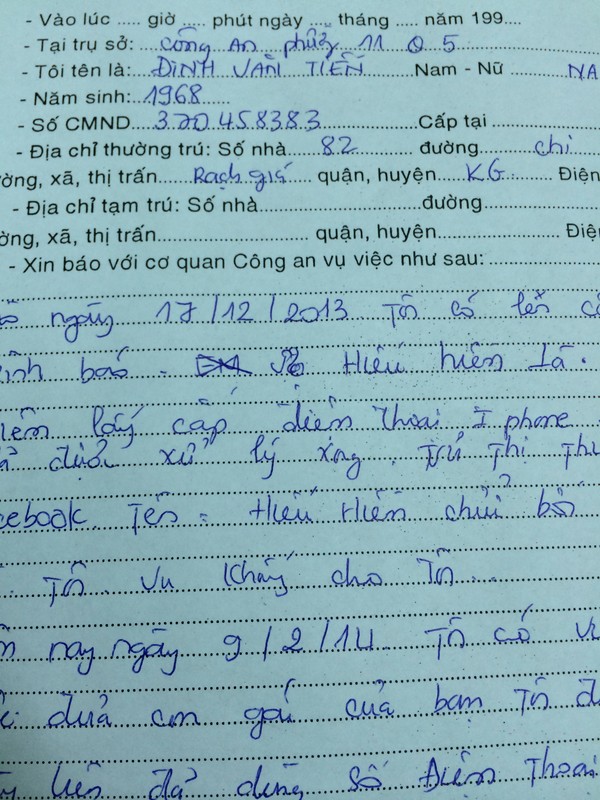 - Vào lúc ..... giờ ..... phút ngày ..... tháng ..... năm 199....
- Tại trụ sở: Công An phường 11 Q 5
- Tôi tên là: ĐINH VĂN TIẾN Nam - Nữ NA
- Năm sinh: 1968
- Số CMND 370458383 Cấp tại
- Địa chỉ thường trú: Số nhà 82 đường chi
ờng, xã, thị trấn Rạch giá quận, huyện KG Điện
- Địa chỉ tạm trú: Số nhà đường
ờng, xã, thị trấn quận, huyện Điện
- Xin báo với cơ quan Công an vụ việc như sau:
ngày 17/12/2013 Tôi có lên cô
trình báo. Hiếu hiền là.
lấy cắp điện thoại I phone
đã được xử lý xong. Thị Thu
cebook Tên: Hiếu Hiền chửi bới
Tôi Vu Khống cho Tôi.
nay ngày 9/2/14 Tôi có
đứa con gái của bạn Tôi
liên đã dùng số Điện Thoại